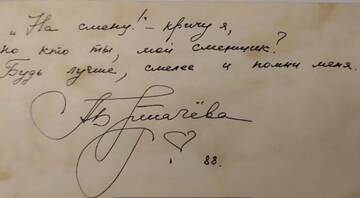 „На смену!" – кричу я,
но кто ты, мой сменщик?
Будь лучше, смелее и помни меня.
88.